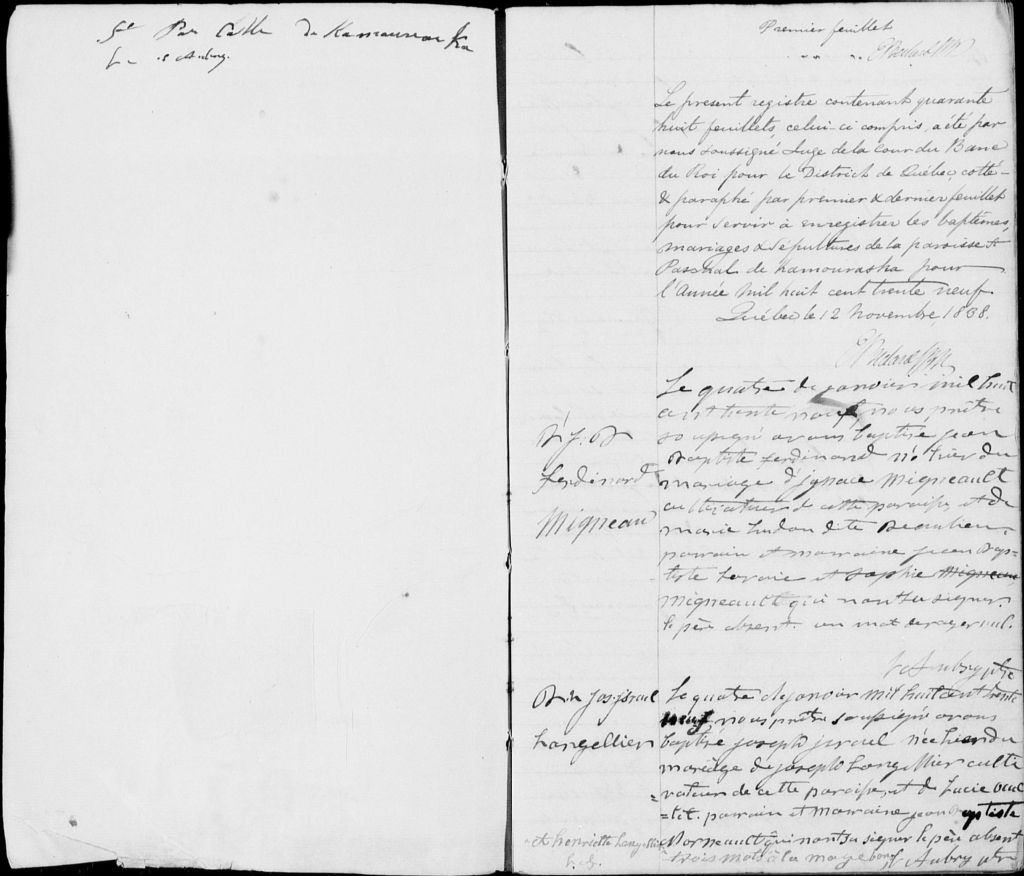 St Pascalle De Kamouraska
Premier feuillet
Le present registre contenant quarante
huit feuillets, celui-ci compris, a été par
nous soussigné Juge de la Cour du Banc
du Roi pour le District de Québec, cotté
& paraphé par premier & dernier feuillet
pour servir à enregistrer les baptêmes,
mariages & sépultures de la paroisse St
Paschal de Kamouraska pour
l'Année mil huit cent trente neuf
Québec le 12 Novembre, 1838.
B. J. B
ferdinand
Migneau
Le quatre de janvier mil huit
cent trente neuf, nous prêtre
soussigné avons baptisé jean
Baptiste ferdinand né hier du
mariage d'ignace Migneault
cultivateur de cette paroisse et de
marie hudon dite Beaulieu
parrain et marraine jean Bap-
tiste et sophie Migneau
Migneault qui n'ont su signer.
le père absent. un mot de rayé nul.
Aubry ptre
B. Jos. israel
Langellier
Le quatre de janvier mil huit cent trente
neuf, nous prêtre soussigné avons
baptisé joseph israel né hier du
mariage de joseph Langellier culti
=vateur de cette paroisse et de Lucie
parrain et marraine jean Baptiste
Morneault qui n'ont su signer le père absent
et henriette Langellier
trois mots à la marge bons Aubry ptre